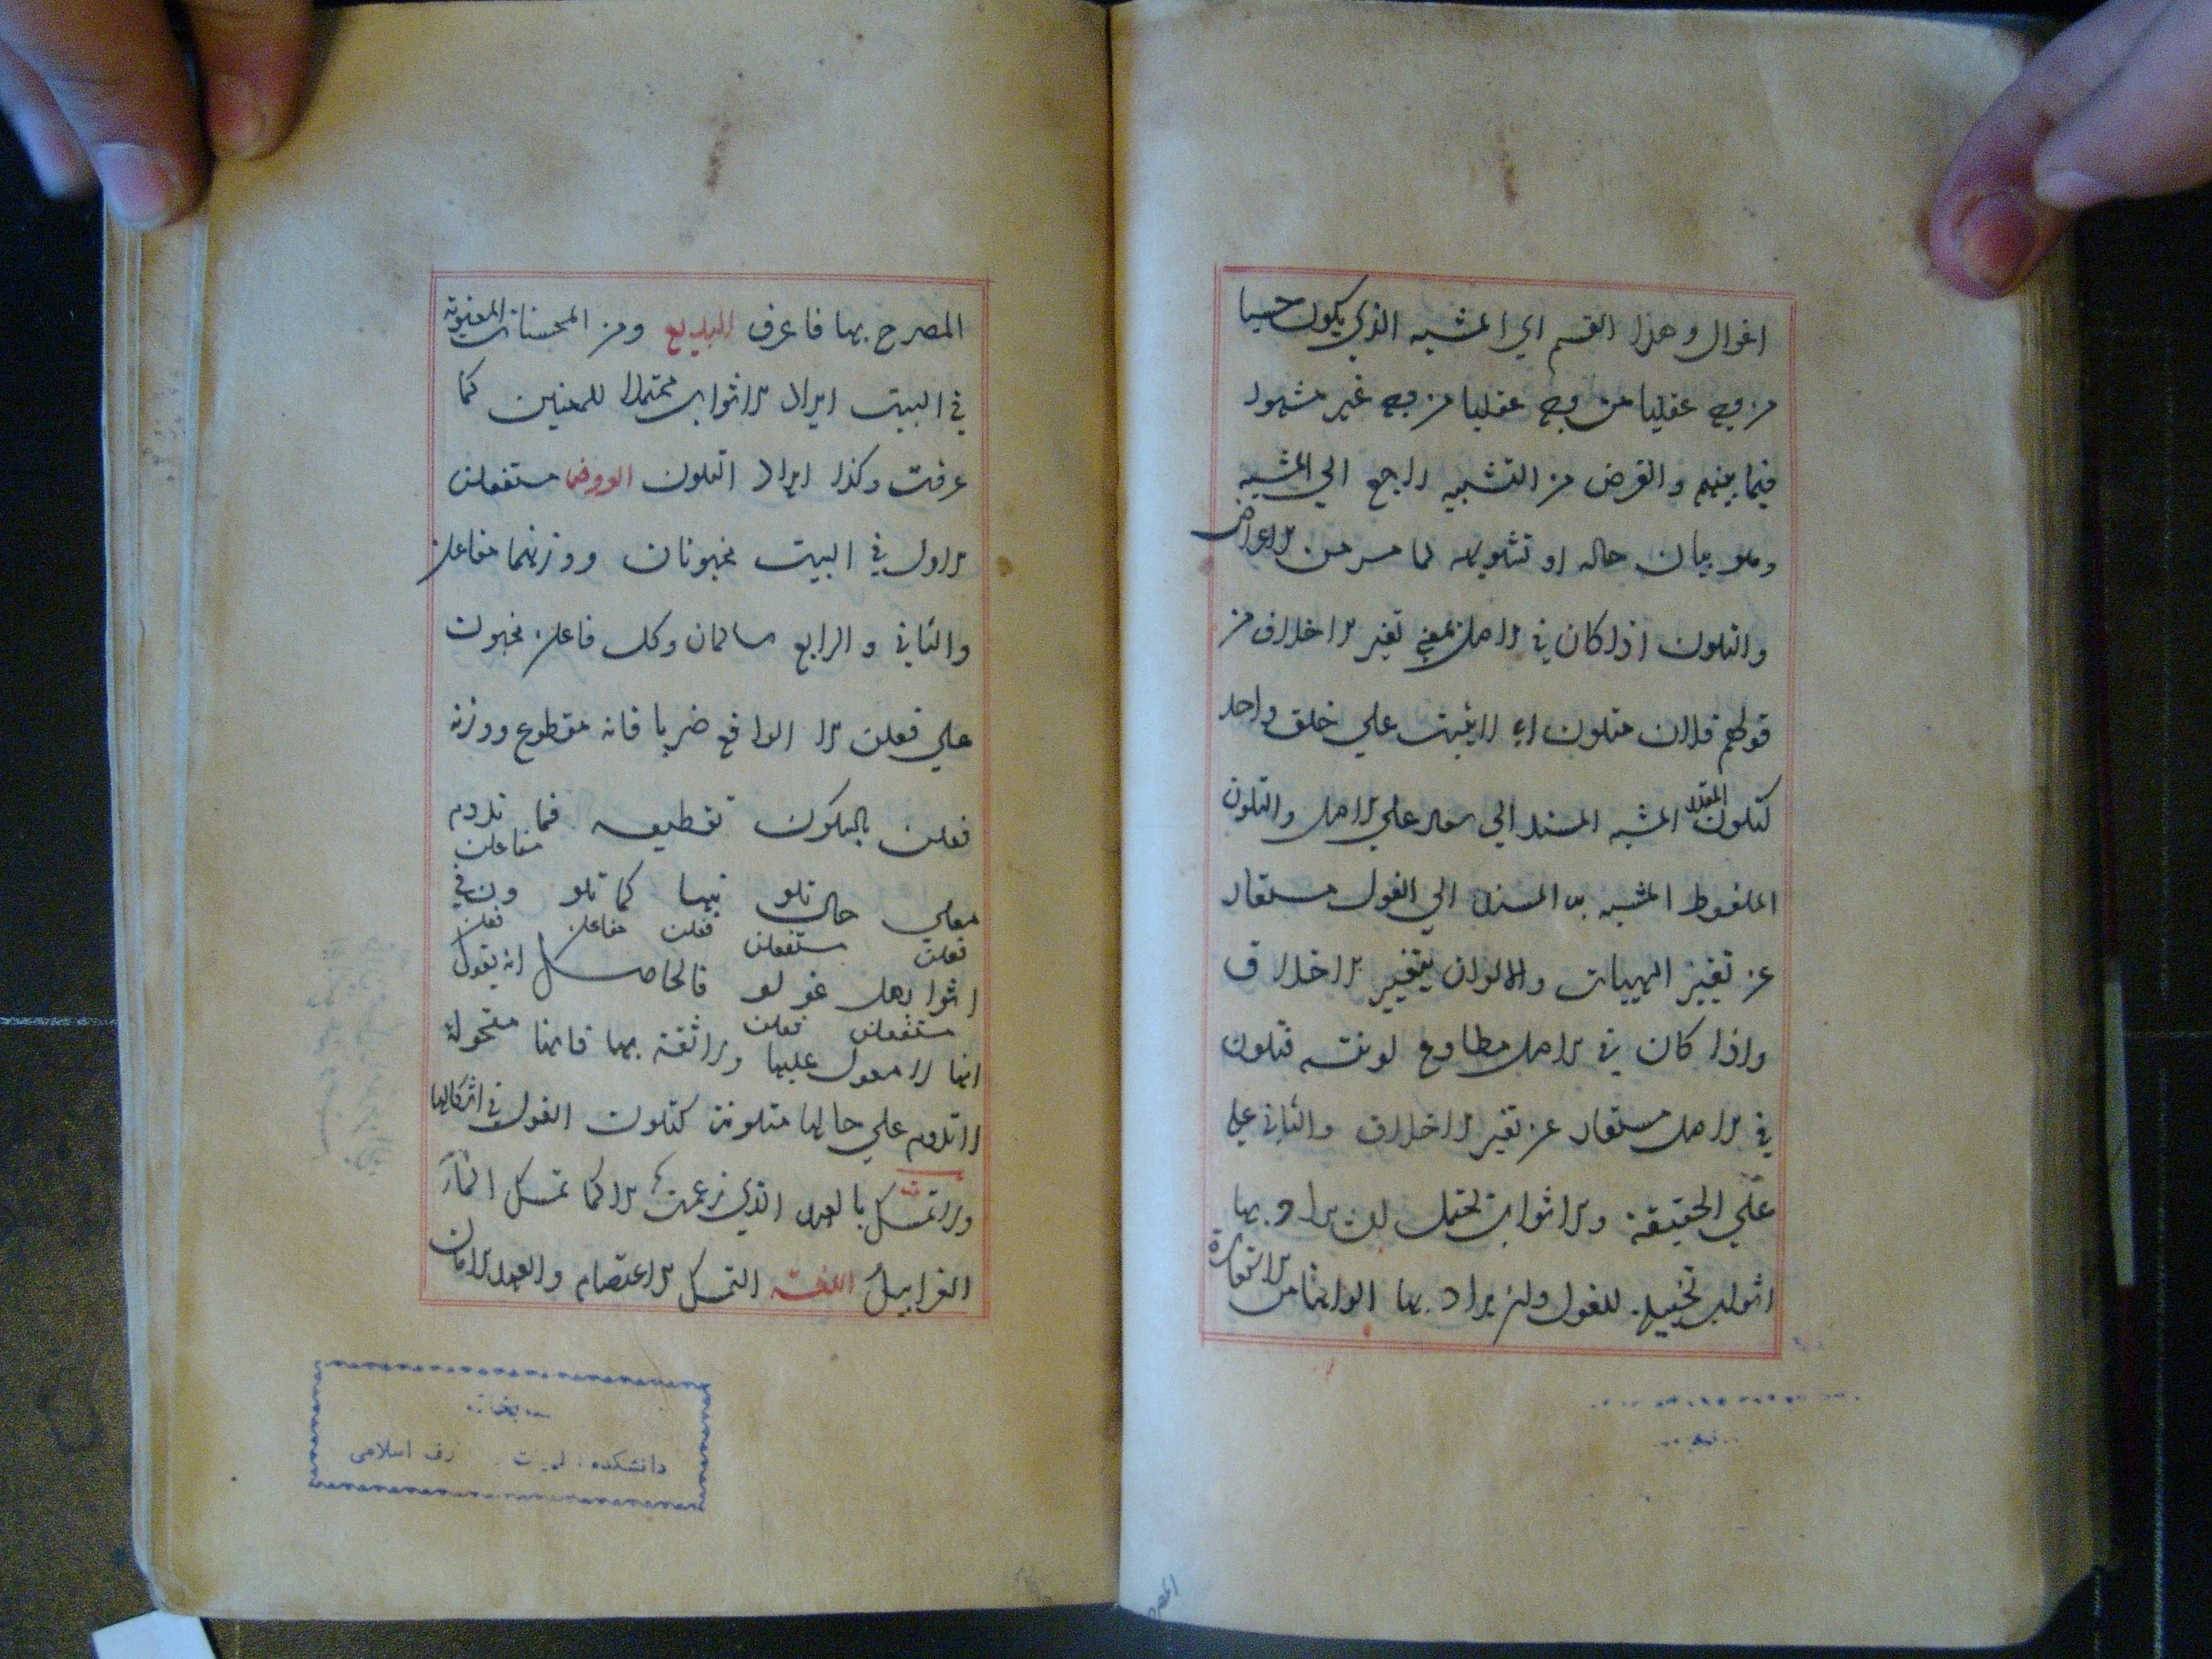 اغوال وهذا القسم اي المشبه الذي يكون حسيا
من وجه عقليا من وجه عقليا من وجه غير مشهور
فيما بينهم والغرض من التشبيه راجع الي المشبه
وهو بيان حاله او تشويهه لما مر من الاعراض
والتلون اذا كان في الاصل بمعني تغير الاخلاق من
قولهم فلان متلون اي لا يثبت علي خلق واحد
كتلون المقدر المشبه المسند الي سعاد علي الاصل والتلون
الملفوظ المشبه به المسند الي الغول مستعار
عن تغير الهيات والالوان بتغير الاخلاق
واذا كان في الاصل مطاوع لونته فتلون
في الاصل مستعار عن تغير الاخلاق والثاني علي
علي الحقيقة والاثواب تحتمل ان يراد بها
اثواب تخييلية للغول وان يراد بها الوانها من الاستعارة
المصر
المصرح بها فاعرف البديع ومن المحسنات المعنوية
في البيت ايراد الاثواب محتملا للمعنيين كما
عرفت وكذا ايراد التلون العروض مستفعلن
الاول في البيت مخبونان ووزنهما مفاعلن
والثاني والرابع سالمان وكل فاعلن مخبون
علي فعلن الا الواقع ضربا فانه مقطوع ووزنه
فعلن بالسكون تقطيعه فما تدوم
مفاعلن
معلي حالن تلو نبها كما تلو ون في
فعلن مستفعلن فعلن مفاعلن فعلن
اثوابهل غولو فالحاصل انه يقول
مستفعلن فعلن
انها لا معول عليها ولا ثقة بها فانها متحولة
لا تدوم علي حالها متلونة كتلون الغول في اشكالها
ولا تمسك بالعهد الذي زعمت الا كما تمسك الماء
الغرابيل اللغة التمسك الاعتصام والعهد الامان
دانشكده اسلامى